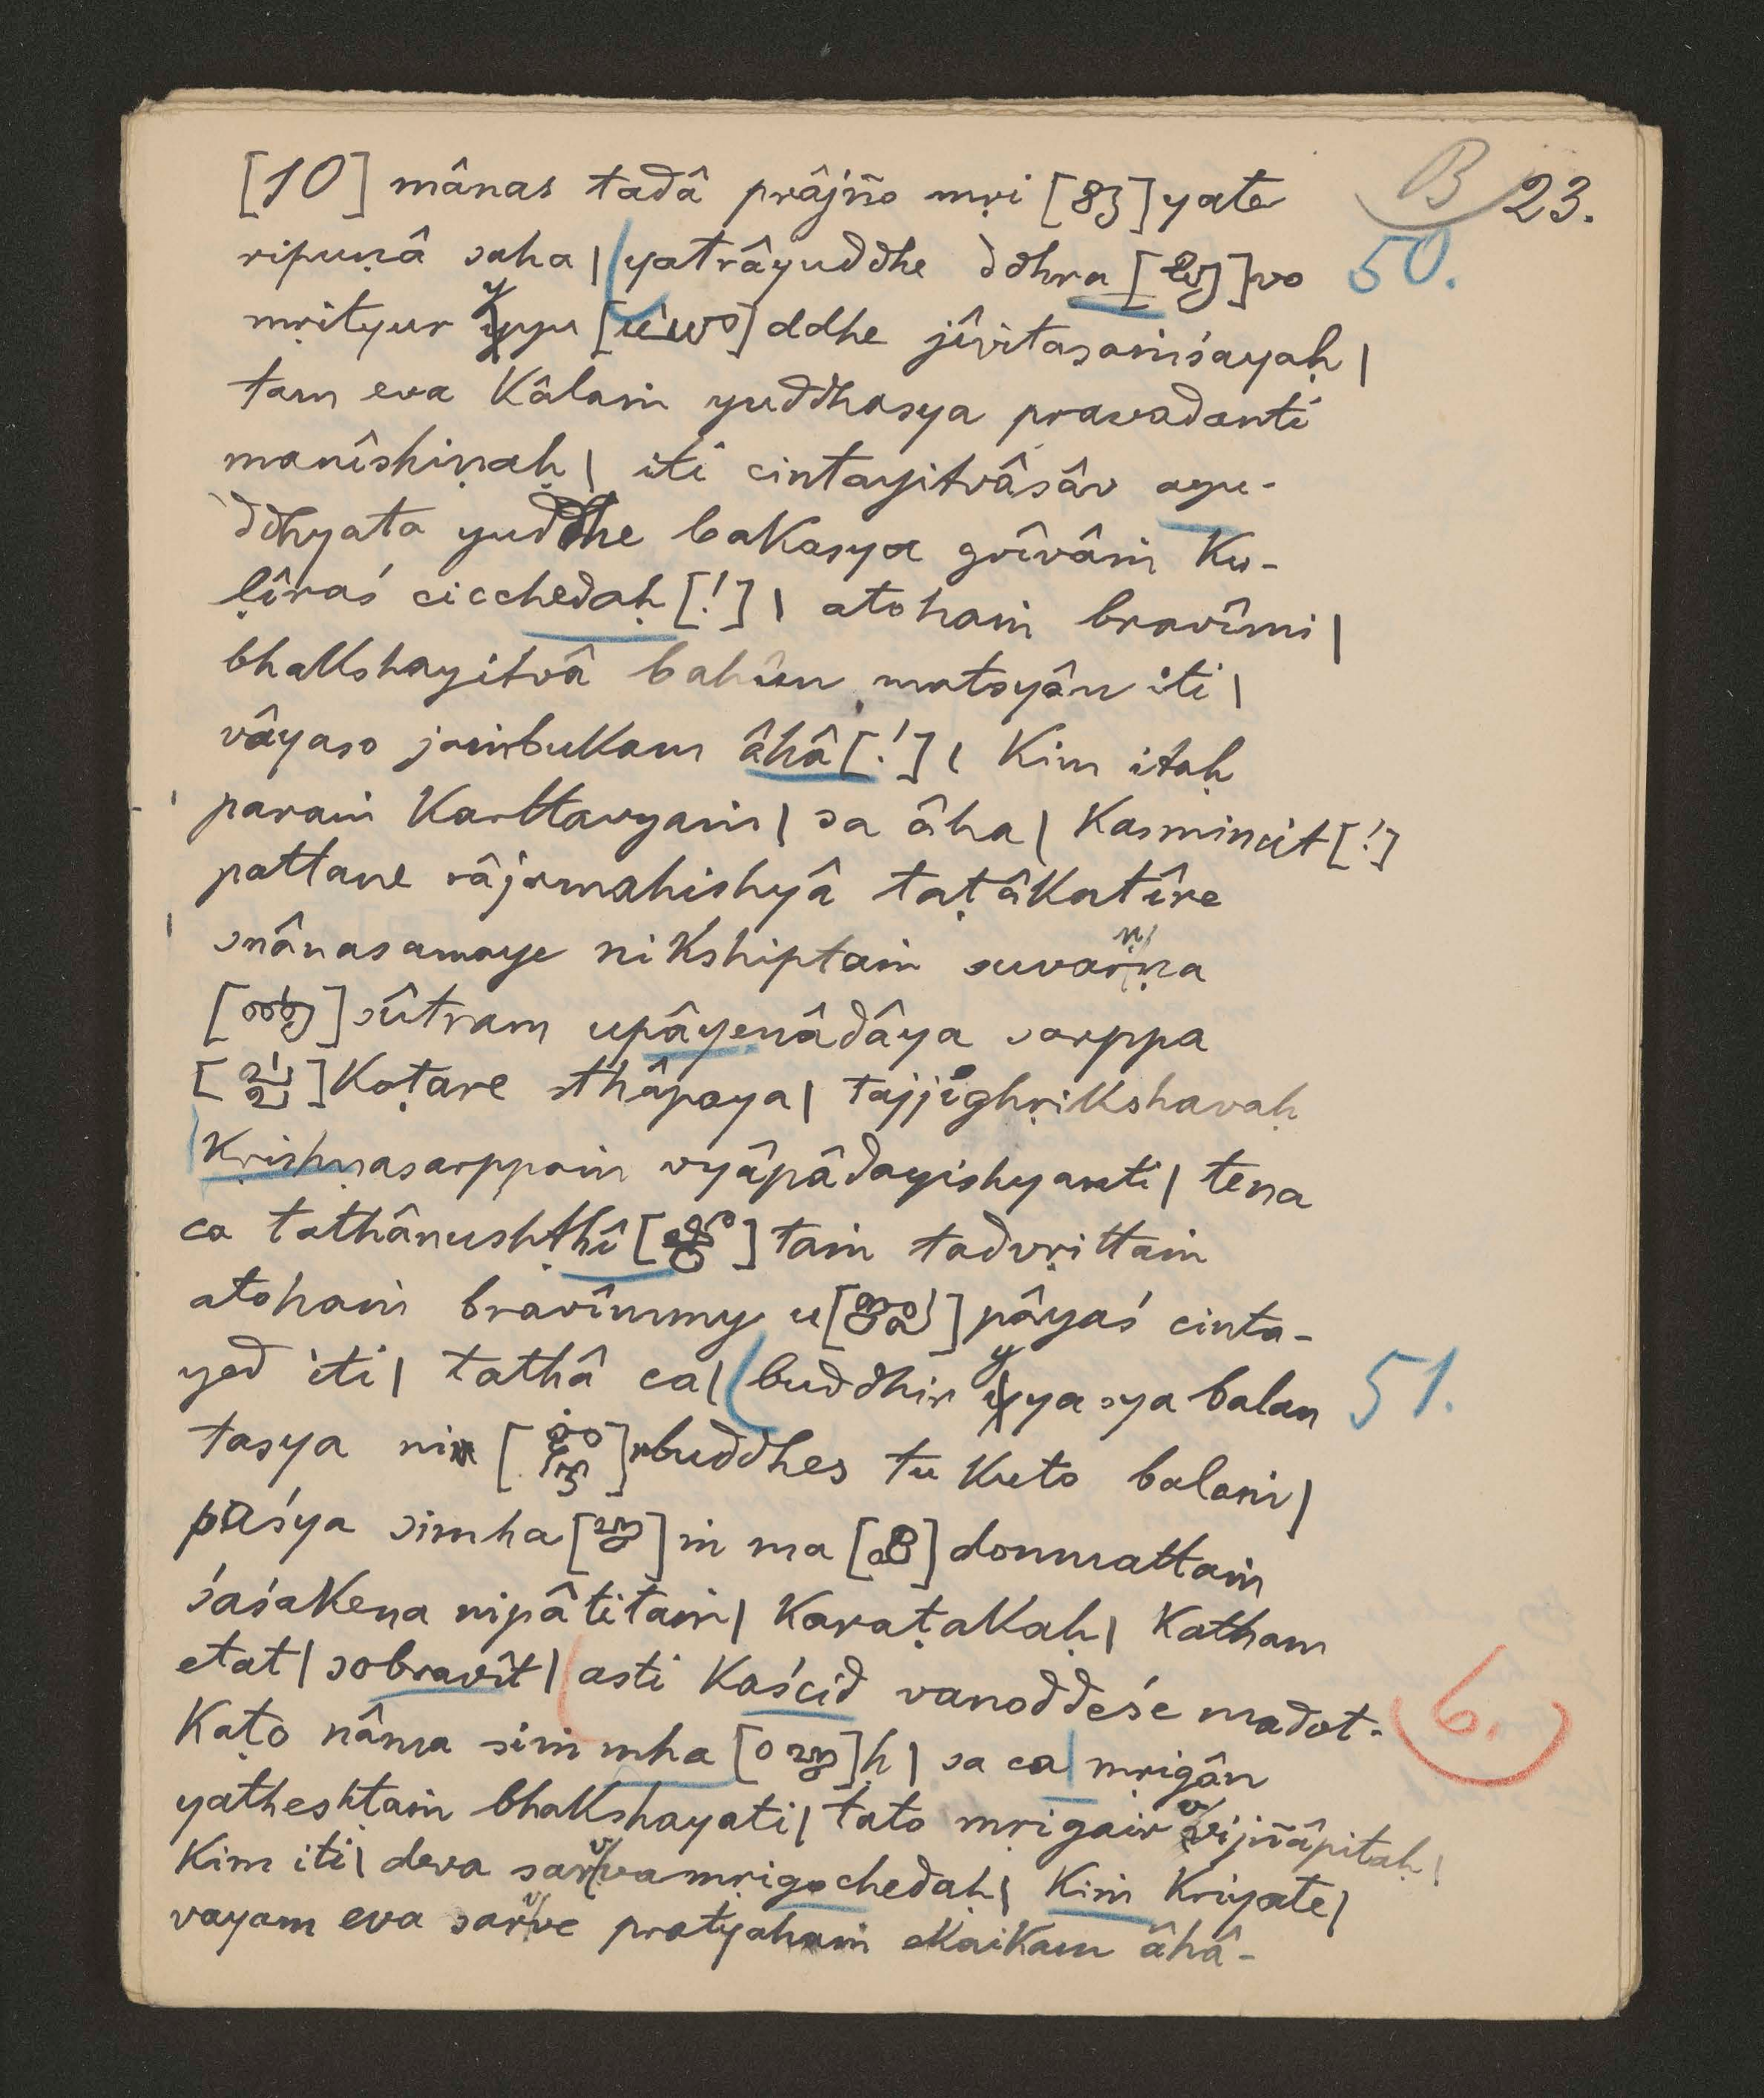 B 23.
[10] mânas tadâ prâjño mṛi [ ]yate
ripuṇâ saha | yatrâyuddhe ddhra [ ]vo 50.
mṛityur yyu [ ]ddhe jîvitasaṁśayaḥ |
tam eva kâlaṁ yuddhasya pravadanti
manîshiṇaḥ | iti cintayitvâsâv ayu-
ddhyata yuddhe bakasya grîvâṁ ku-
ḷîraś cicchedaḥ [!] | atohaṁ bravîmi |
bhakshayitvâ bahûn matsyân iti |
vâyaso jaṁbukam âhâ [!] | kim itaḥ
paraṁ karttavyaṁ | sa âha | kasmincit [!]
pattane râjamahishyâ taṭâkatîre
snânasamaye nikshiptaṁ suvarṇa
[ ]sûtram upâyenâdâya sarppa
[ ]koṭare sthâpaya | tajjighṛikshavaḥ
kṛishṇasarppaṁ vyâpâdayishyanti | tena
ca tathânushṭhî [ ] taṁ tadvṛittaṁ
atohaṁ bravîmmy u[ ]pâyaś cinta-
yed iti | tathâ ca | buddhir yyasya balan 51.
tasya ni [ ]rbuddhes tu kuto balaṁ |
paśya simha [ ] ṁ ma [ ] donmattaṁ
śaśakena nipâtitaṁ | karaṭakaḥ | katham
etat | sobravît | asti kaścid vanoddeśe madot- 6.
kaṭo nâma siṁmha [ ]ḥ | sa ca | mṛigân
yatheshṭaṁ bhakshayati | tato mṛigair vvijñâpitaḥ |
kim iti | deva sarvvamṛigochedaḥ | kiṁ kriyate |
vayam eva sarvve pratyahaṁ ekaikam âhâ-